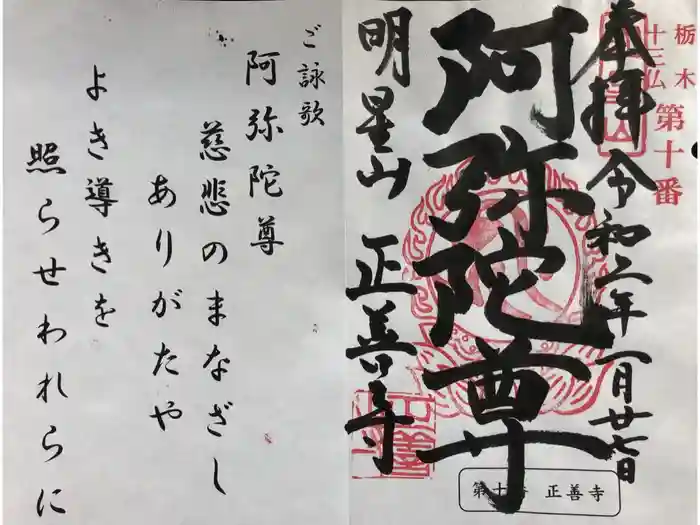 栃木
十三仏
第十番
奉拝 令和二年一月廿七日
阿弥陀尊
明星山 正善寺
第十番 正善寺
ご詠歌
阿弥陀尊
慈悲のまなざし
ありがたや
よき導きを
照らせわれらに